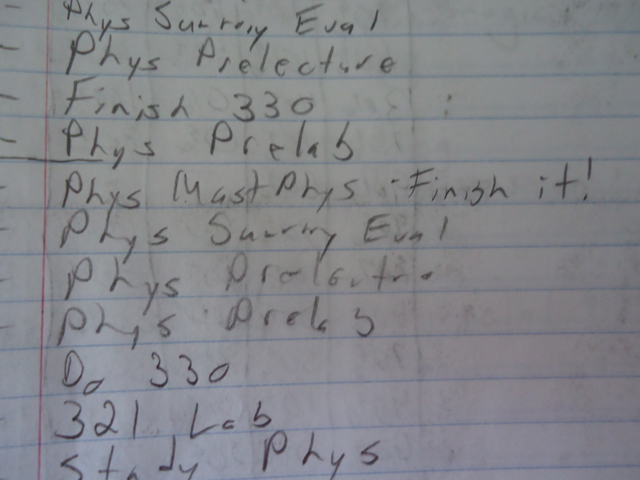 Phys Summry Eval
- Phys Prelecture
- Finish 330
- Phys Prelab
- Phys MastPhys - Finish it!
- Phys Summry Eval
- Phys Prelectre
- Phys Prelab
- Do 330
- 321 Lab
- Study Phys